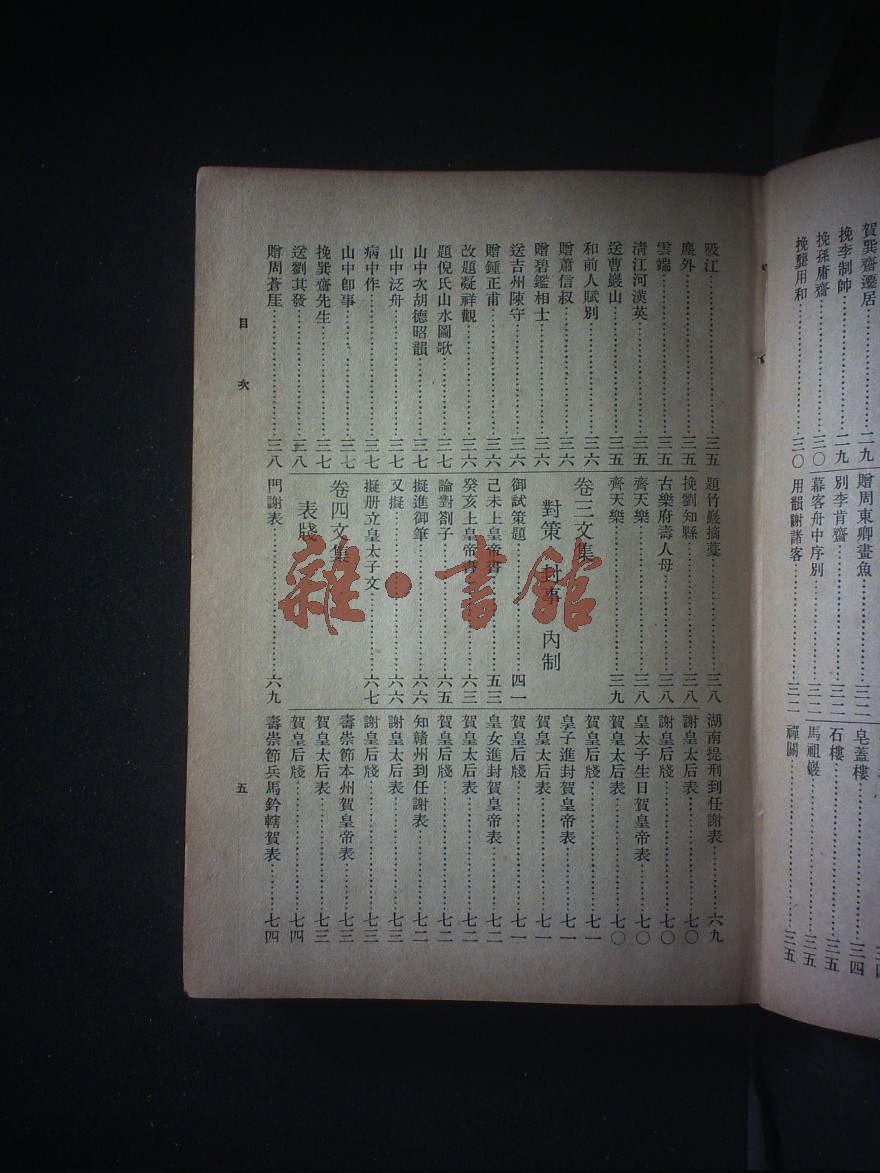 賀巽齋遷居
挽李制帥……二九
挽孫庸齋……三〇
挽龔用和……三〇
贈周東卿畫魚……三二
別李肯齋……三二
幕客舟中序別……三二
用韻謝諸客……三二
皂蓋樓……三四
石樓……三五
馬祖巖……三五
禪關……三五
吸江……三五
塵外……三五
雲端……三五
清江河漢英……三五
送曹巖山……三五
和前人賦別……三六
贈蕭信叔……三六
贈碧鑑相士……三六
送吉州陳守……三六
贈鍾正甫……三六
改題凝祥觀……三六
題倪氏山水圖歌……三七
山中次胡德昭韻……三七
山中泛舟……三七
病中作……三七
山中卽事……三七
挽巽齋先生……三七
送劉其發……三八
贈周蒼厓……三八
題竹巖摘藁……三八
挽劉知縣……三八
古樂府壽人母……三八
齊天樂……三八
齊天樂……三九
卷三文集
對策 封事 內制
御試策題……四一
己未上皇帝書……五三
癸亥上皇帝書……六三
論對劄子……六五
擬進御筆……六六
又擬……六六
擬册立皇太子文……六七
卷四文集
表牋
門謝表……六九
湖南提刑到任謝表……六九
謝皇太后表……七〇
謝皇后牋……七〇
皇太子生日賀皇帝表……七〇
賀皇太后表……七〇
賀皇后牋……七一
皇子進封賀皇帝表……七一
賀皇太后表……七一
賀皇后牋……七一
皇女進封賀皇帝表……七二
賀皇太后表……七二
賀皇后牋……七二
知贛州到任謝表……七二
謝皇太后表……七三
謝皇后牋……七三
壽崇節本州賀皇帝表……七三
賀皇太后表……七三
賀皇后牋……七四
壽崇節兵馬鈐轄賀表……七四
目次
五
雜·書館